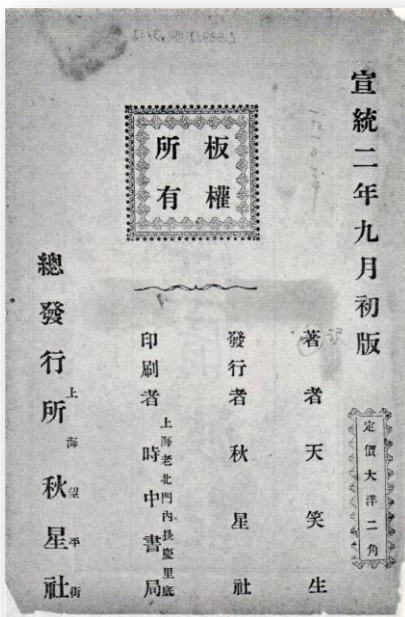 宣統二年九月初版
定價大洋二角
板權
所有
著者天笑生
發行者秋星社
印刷者上海老北門內長慶里底時中書局
總發行所上海望平街秋星社